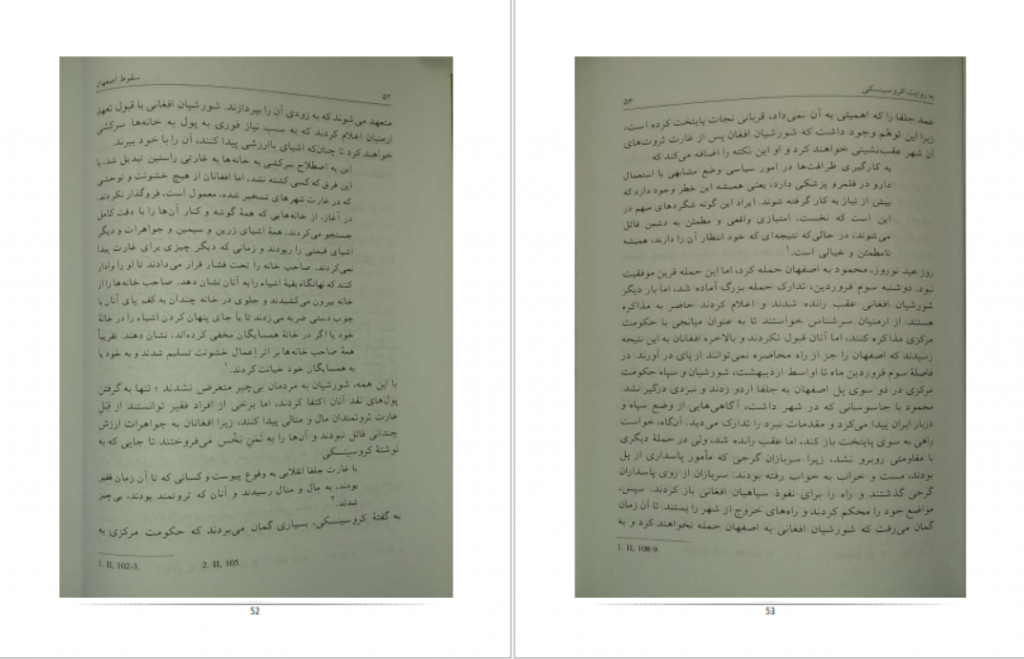 سقوط اصفهان
۵۲
متعهد می‌شوند که به زودی آن را بپردازند. شورشیان افغانی با قبول تعهد
ارمنیان اعلام کردند که به سبب نیاز فوری به پول به خانه‌ها سرکشی
خواهند کرد تا چنان‌که اشیای باارزشی پیدا کنند، آن را با خود ببرند.
این به اصطلاح سرکشی به خانه‌ها به غارتی راستین تبدیل شد، با
این فرق که کسی کشته نشد، اما افغانان از هیچ خشونت و توحشی
که در غارت شهرهای تسخیر شده، معمول است، فروگذار نکردند.
در آغاز، از خانه‌هایی که همهٔ گوشه و کنار آن‌ها را با دقت کامل
جستجو می‌کردند، همهٔ اشیای زرین و سیمین و جواهرات و دیگر
اشیای قیمتی را ربودند و زمانی که دیگر چیزی برای غارت پیدا
نمی‌کردند، صاحب خانه را تحت فشار قرار می‌دادند تا او را وادار
کنند که نهانگاه بقیهٔ اشیاء را به آنان نشان دهد. صاحب خانه‌ها را از
خانه بیرون می‌کشیدند و جلوی در خانه چندان به کف پای آنان با
چوب دستی ضربه می‌زدند تا یا جای پنهان کردن اشیاء را در خانهٔ
خود یا اگر در خانهٔ همسایگان مخفی کرده‌اند، نشان دهند. تقریباً
همهٔ صاحب خانه‌ها بر اثر اِعمال خشونت تسلیم شدند و به خود یا
به همسایگان خود خیانت کردند.۱
با این همه، شورشیان به مردمان بی‌چیز متعرض نشدند؛ تنها به گرفتن
پول‌های نقد آنان اکتفا کردند، اما برخی از افراد فقیر توانستند از قِبَلِ
غارت ثروتمندان مال و منالی پیدا کنند، زیرا افغانان به جواهرات ارزش
چندانی قائل نبودند و آن‌ها را به ثَمَنِ بَخْس می‌فروختند تا جایی که به
نوشتهٔ کروسینسکی
با غارت جلفا انقلابی به وقوع پیوست و کسانی که تا آن زمان فقیر
بودند، به مال و منال رسیدند و آنان که ثروتمند بودند، بی‌چیز
شدند.۲
به گفتهٔ کروسینسکی، بسیاری گمان می‌بردند که حکومت مرکزی به
1. II, 102-3. 2. II, 105.
52
به روایت کروسینسکی
۵۳
عمد جلفا را که اهمیتی به آن نمی‌داد، قربانی نجات پایتخت کرده است،
زیرا این توهّم وجود داشت که شورشیان افغان پس از غارت ثروت‌های
آن شهر عقب‌نشینی خواهند کرد و او این نکته را اضافه می‌کند که
به کارگیری ظرافت‌ها در امور سیاسی وضع مشابهی با استعمال
دارو در قلمرو پزشکی دارد، یعنی همیشه این خطر وجود دارد که
بیش از نیاز به کار گرفته شوند. ایراد این گونه شگردهای مبهم در
این است که نخست، امتیازی واقعی و مطمئن به دشمن قائل
می‌شوند، در حالی‌که نتیجه‌ای که خود انتظار آن را دارند، همیشه
نامطمئن و خیالی است.۱
روز عید نوروز، محمود به اصفهان حمله کرد، اما این حمله قرین موفقیت
نبود. دوشنبه سوم فروردین، تدارک حمله بزرگ آماده شد، اما بار دیگر
شورشیان افغانی عقب رانده شدند و اعلام کردند حاضر به مذاکره
هستند. از ارمنیان سرشناس خواستند تا به عنوان میانجی با حکومت
مرکزی مذاکره کنند، اما آنان قبول نکردند و بالاخره افغانان به این نتیجه
رسیدند که اصفهان را جز از راه محاصره نمی‌توانند از پای در آورند. در
فاصلهٔ سوم فروردین ماه تا اواسط اردیبهشت، شورشیان و سپاه حکومت
مرکزی در دو سوی پل اصفهان به جلفا اردو زدند و نبردی درگیر نشد.
محمود با جاسوسانی که در شهر داشت، آگاهی‌هایی از وضع سپاه و
دربار ایران پیدا می‌کرد و مقدمات نبرد را تدارک می‌دید. آن‌گاه، خواست
راهی به سوی پایتخت باز کند، اما عقب رانده شد، ولی در حملهٔ دیگری
با مقاومتی روبرو نشد، زیرا سربازان گرجی که مأمور پاسداری از پل
بودند، مست و خراب به خواب رفته بودند. سربازان از روی پاسداران
گرجی گذشتند و راه را برای نفوذ سپاهیان افغانی باز کردند. سپس،
مواضع خود را محکم کردند و راه‌های خروج از شهر را بستند. تا آن زمان
گمان می‌رفت که شورشیان افغانی به اصفهان حمله نخواهند کرد و به
1. II, 108-9.
53